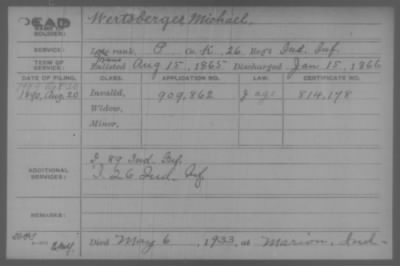 DEAD
NAME OF SOLDIER: Wertsberger Michael.
SERVICE: Late rank, P Co. K, 26 Reg't Ind. Inf.
TERM OF SERVICE: Enlisted Aug 15, 1865 Discharged Jan 15, 1866
DATE OF FILING. CLASS. APPLICATION NO. LAW. CERTIFICATE NO.
1890, Aug. 20 Invalid, 909,862 J age 814,178
Widow,
Minor,
ADDITIONAL SERVICES: F. 89 Ind. Inf.
F. 26 Ind. Inf.
REMARKS:
Died May 6, 1933, at Marion, Ind-